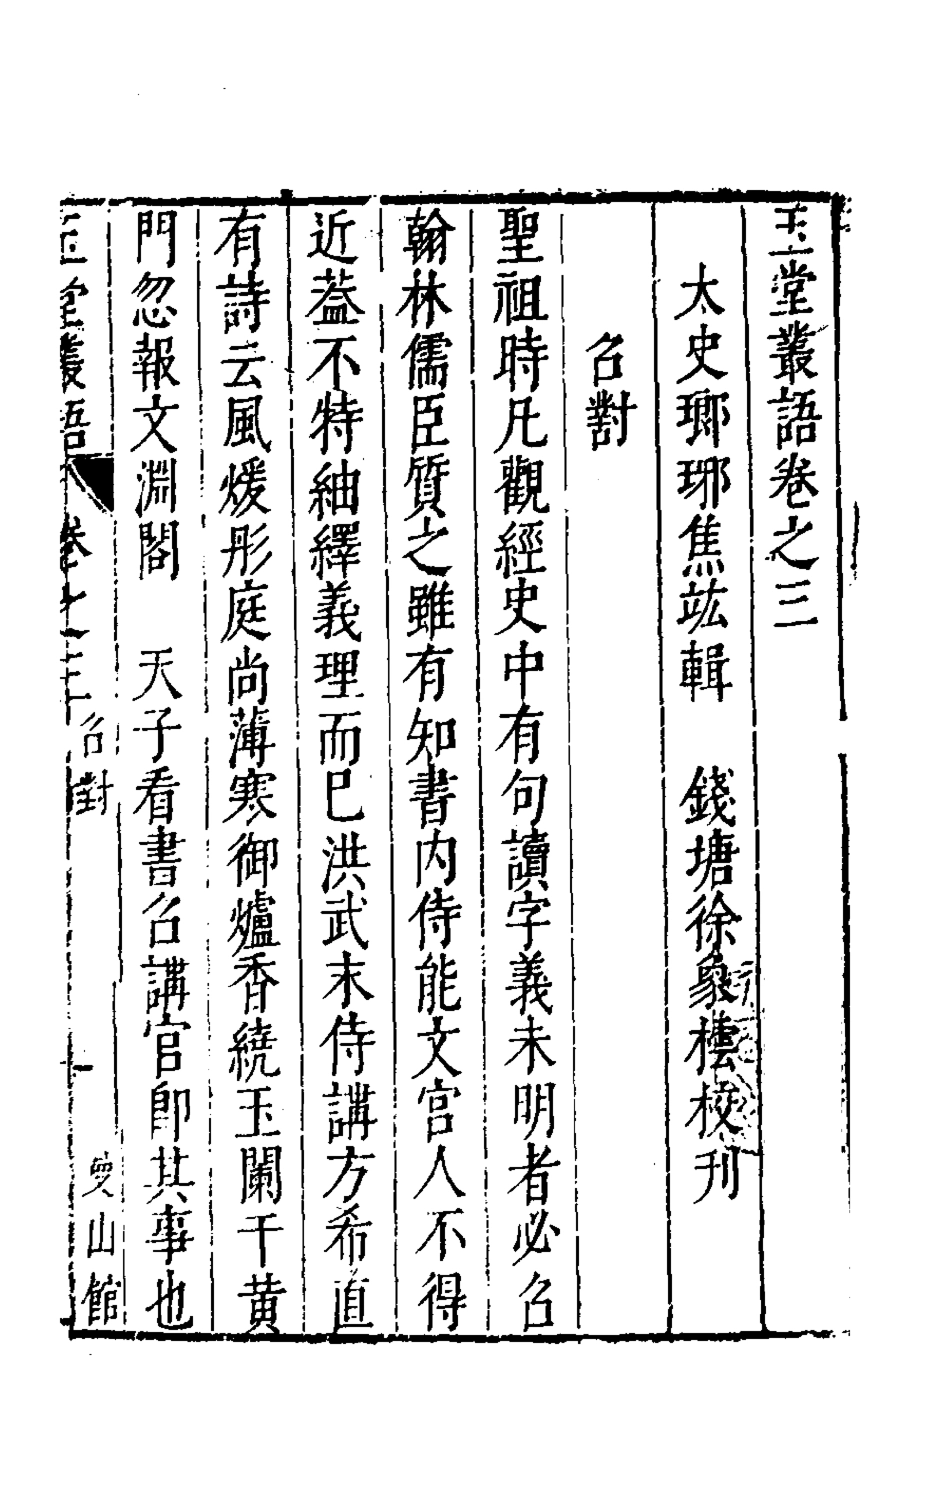 玉堂叢語卷之三
太史瑯琊焦竑輯　錢塘徐象橒校刊
召對
聖祖時凡觀經史中有句讀字義未明者必召
翰林儒臣質之雖有知書內侍能文宮人不得
近葢不特紬繹義理而巳洪武末侍講方希直
有詩云風煖彤庭尚薄寒御爐香繞玉闌干黄
門忽報文淵閣　天子看書召講官卽其事也
玉堂叢語　卷之三　召對　一　曼山館